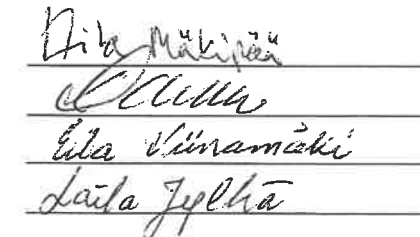 Aila Mäkipää
Eila Viinamäki
Laila Jylhä